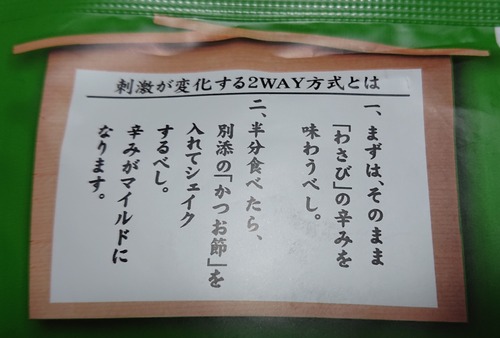 刺激が変化する2WAY方式とは
一、まずは、そのまま
「わさび」の辛みを
味わうべし。
二、半分食べたら、
別添の「かつお節」を
入れてシェイク
するべし。
辛みがマイルドに
なります。